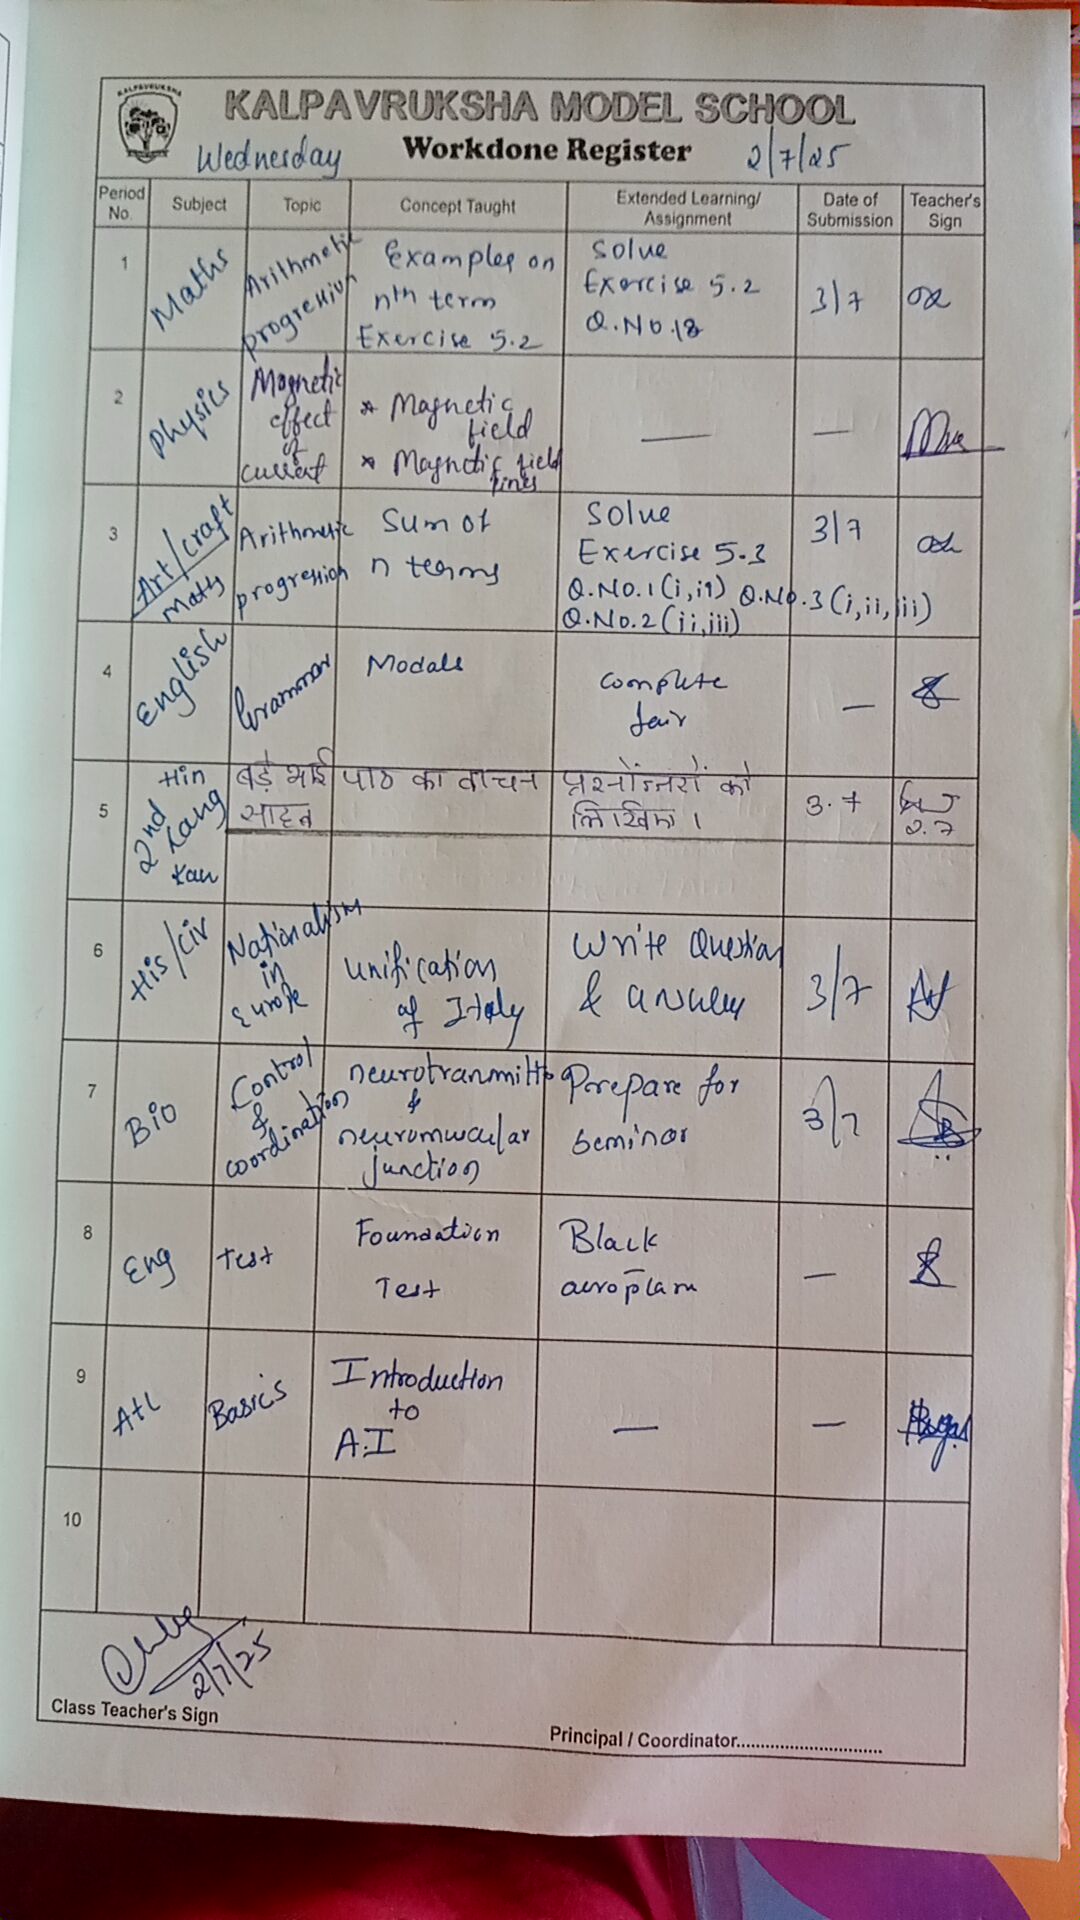 KALPAVRUKSHA
KALPAVRUKSHA MODEL SCHOOL
Wednesday Workdone Register 2/7/25
Period No. Subject Topic Concept Taught Extended Learning/ Assignment Date of Submission Teacher's Sign
1 Maths Arithmetic progression Examples on nth term Exercise 5.2 Solve Exercise 5.2 Q.No.18 3/7
2 Physics Magnetic effect of current * Magnetic field * Magnetic field lines — —
3 Art/craft Maths Arithmetic progression Sum of n terms Solve Exercise 5.3 3/7
Q.No.1(i,iv) Q.No.3(i,ii,iii)
Q.No.2(ii,iii)
4 English Grammar Modals complete fair —
5 2nd Lang Hin बड़े भाई साहब पाठ का वाचन प्रश्नोत्तरों को लिखिए। 3.7 2.7
Kan
6 His/Civ Nationalism in Europe Unification of Italy Write Question & answer 3/7
7 Bio Control & coordination neurotransmitto & neuromuscular junction Prepare for seminar 3/7
8 Eng Test Foundation Test Black aeroplane —
9 Atl Basics Introduction to A.I — —
10
2/7/25
Class Teacher's Sign
Principal / Coordinator..............................